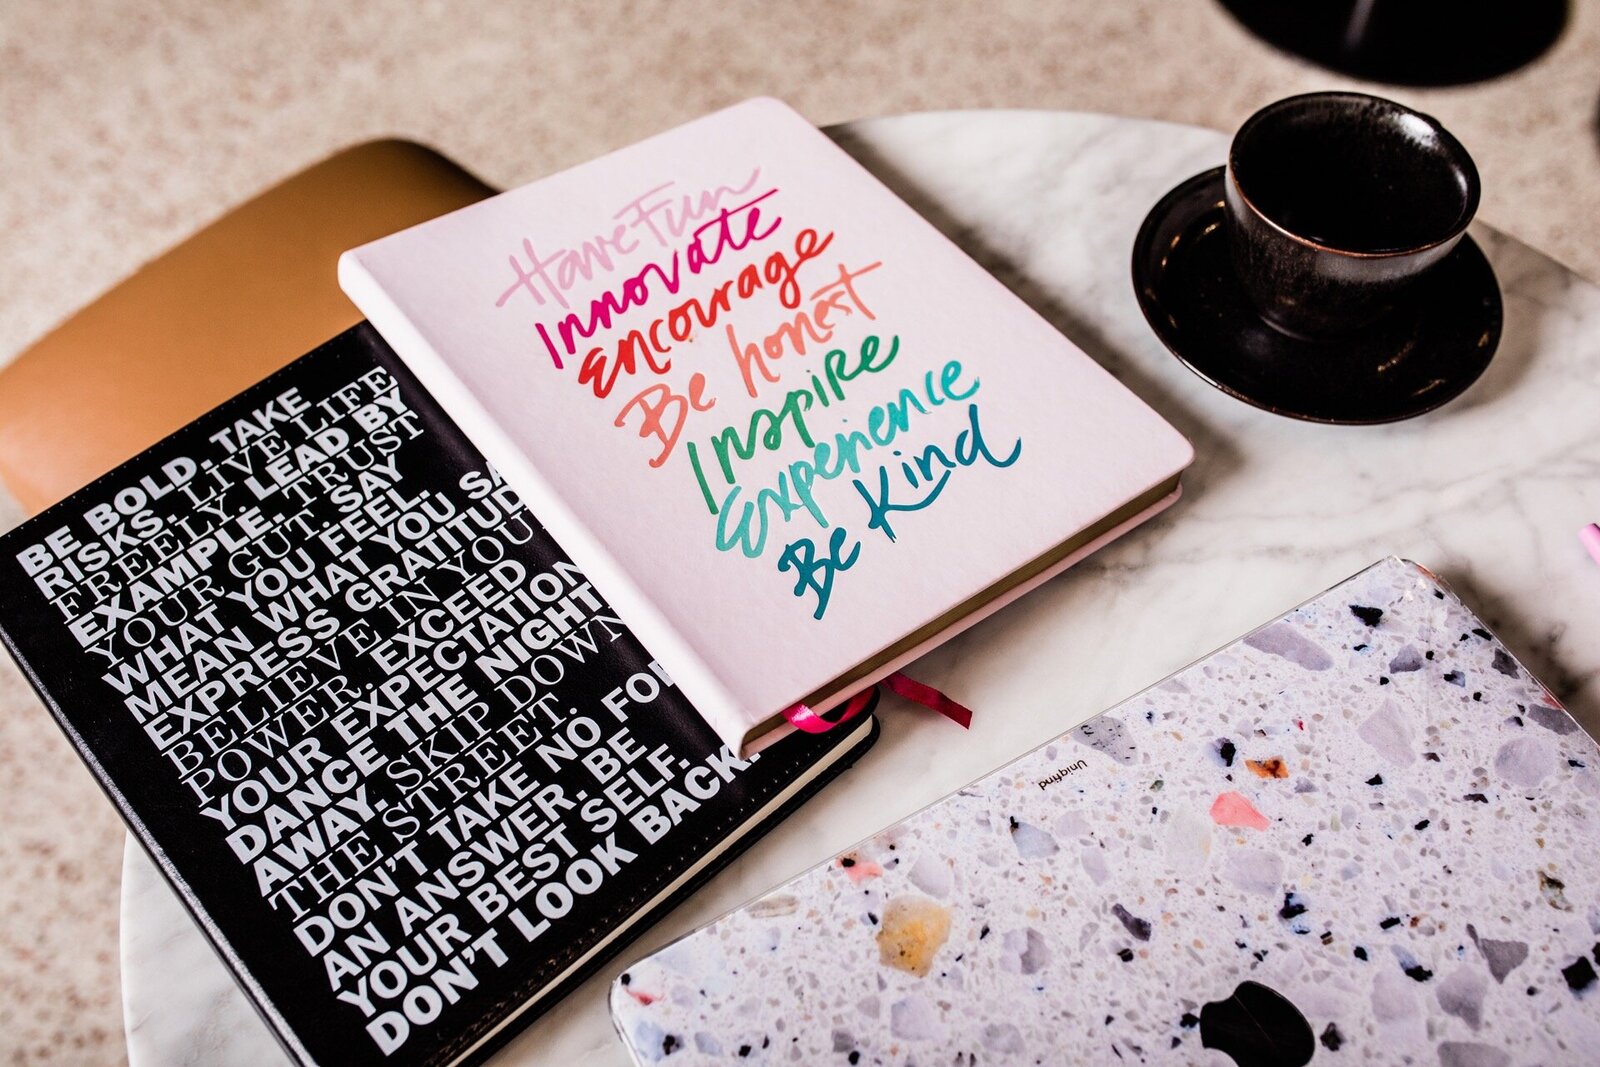 Have Fun
Innovate
Encourage
Be honest
Inspire
Experience
Be Kind
BE BOLD. TAKE
RISKS. LIVE LIFE
FREELY. LEAD BY
EXAMPLE. TRUST
YOUR GUT. SAY
WHAT YOU FEEL.
MEAN WHAT YOU SA
EXPRESS GRATITUD
BELIEVE IN YOU
POWER. EXCEED
YOUR EXPECTATION
DANCE THE NIGHT
AWAY. SKIP DOWN
THE STREET.
DON'T TAKE NO FO
AN ANSWER. BE
YOUR BEST SELF.
DON'T LOOK BACK.
Uniqfind